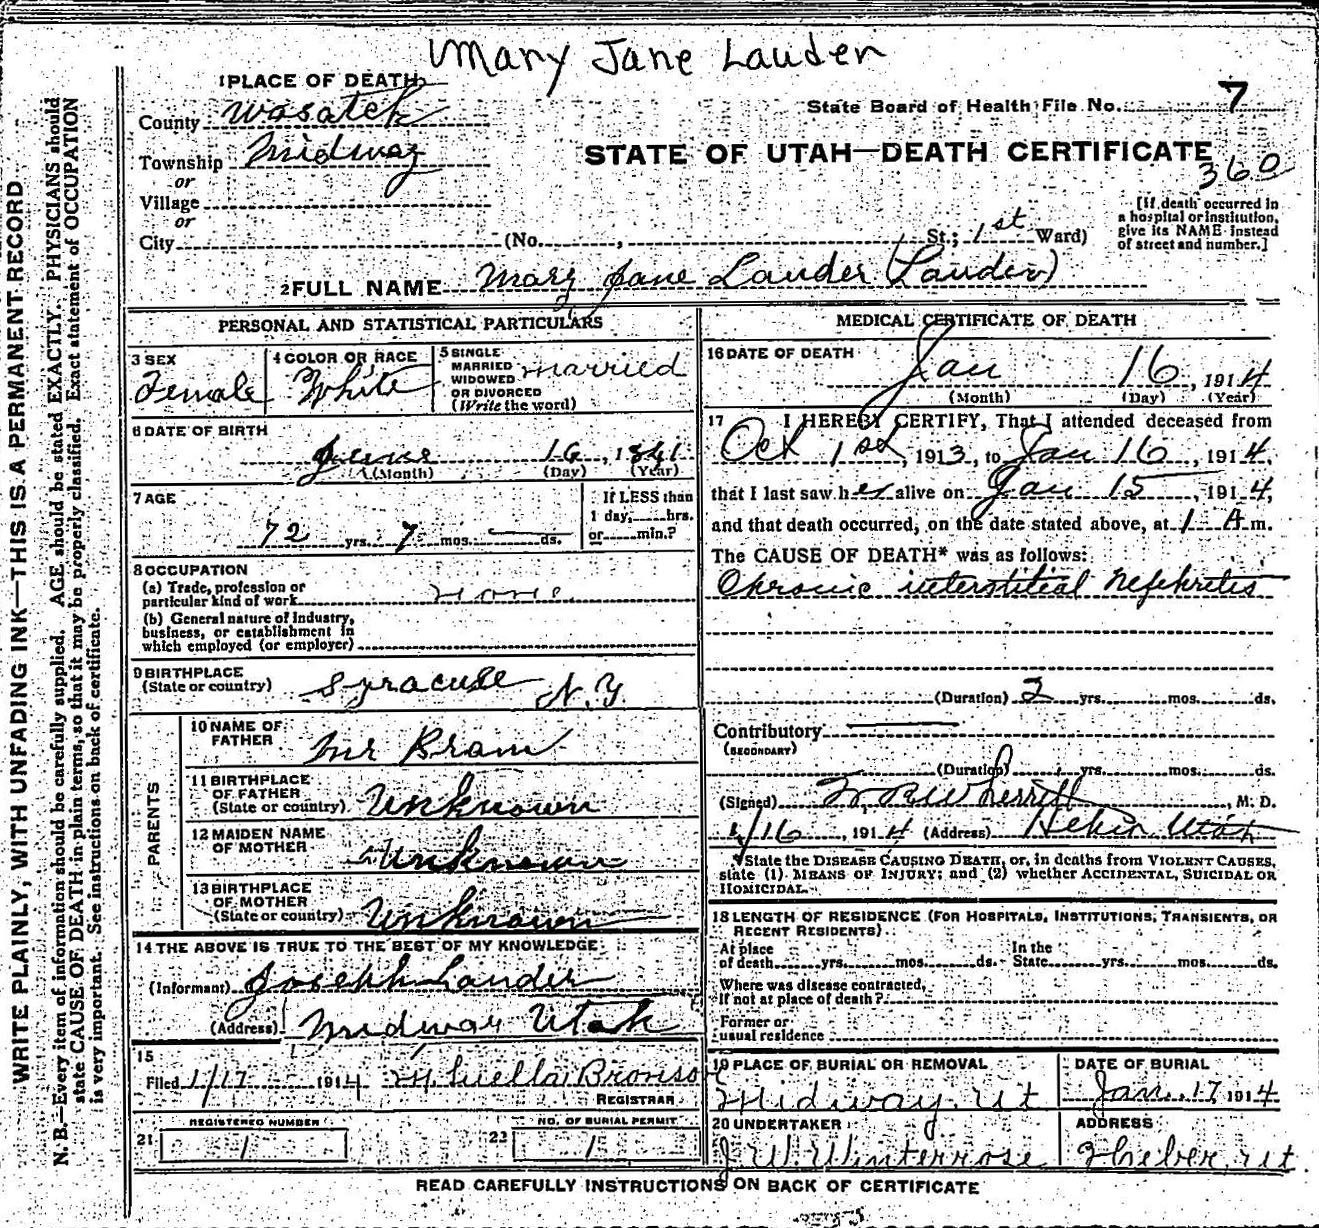 Mary Jane Lauder
1 PLACE OF DEATH
County Wasatch
State Board of Health File No. 7
Township Midway
STATE OF UTAH—DEATH CERTIFICATE
360
or
Village
or
City (No. , St.; 1st Ward)
[If death occurred in
a hospital or institution,
give its NAME instead
of street and number.]
2 FULL NAME Mary Jane Lauder (Lauder)
PERSONAL AND STATISTICAL PARTICULARS
3 SEX
Female
4 COLOR OR RACE
White
5 SINGLE
MARRIED
WIDOWED
OR DIVORCED
(Write the word)
married
6 DATE OF BIRTH
June 16, 1841
(Month) (Day) (Year)
7 AGE
72 yrs. 7 mos. — ds.
If LESS than
1 day, hrs.
or min.?
8 OCCUPATION
(a) Trade, profession or
particular kind of work none
(b) General nature of Industry,
business, or establishment in
which employed (or employer)
9 BIRTHPLACE
(State or country) Syracuse N.Y.
PARENTS
10 NAME OF
FATHER Mr Bram
11 BIRTHPLACE
OF FATHER
(State or country) Unknown
12 MAIDEN NAME
OF MOTHER Unknown
13 BIRTHPLACE
OF MOTHER
(State or country) Unknown
14 THE ABOVE IS TRUE TO THE BEST OF MY KNOWLEDGE
(Informant) Joseph Lauder
(Address) Midway Utah
15
Filed 1/17 1914 Luella Bronson
REGISTRAR
REGISTERED NUMBER
21 1
NO. OF BURIAL PERMIT
22 1
MEDICAL CERTIFICATE OF DEATH
16 DATE OF DEATH
Jan 16, 1914
(Month) (Day) (Year)
17 I HEREBY CERTIFY, That I attended deceased from
Oct 1st, 1913, to Jan 16, 1914,
that I last saw her alive on Jan 15, 1914,
and that death occurred, on the date stated above, at 1 A m.
The CAUSE OF DEATH* was as follows:
Chronic interstitial Nephretis
(Duration) 2 yrs. mos. ds.
Contributory
(SECONDARY)
(Duration) yrs. mos. ds.
(Signed) Wherritt, M. D.
1/16, 1914 (Address) Heber Utah
*State the DISEASE CAUSING DEATH, or, in deaths from VIOLENT CAUSES,
state (1) MEANS OF INJURY; and (2) whether ACCIDENTAL, SUICIDAL OR
HOMICIDAL.
18 LENGTH OF RESIDENCE (FOR HOSPITALS, INSTITUTIONS, TRANSIENTS, OR
RECENT RESIDENTS).
At place In the
of death yrs. mos. ds. State yrs. mos. ds.
Where was disease contracted,
if not at place of death?
Former or
usual residence
19 PLACE OF BURIAL OR REMOVAL
Midway, Ut
DATE OF BURIAL
Jan. 17 1914
20 UNDERTAKER
J W. Winterrose
ADDRESS
Heber, Ut.
READ CAREFULLY INSTRUCTIONS ON BACK OF CERTIFICATE
WRITE PLAINLY, WITH UNFADING INK—THIS IS A PERMANENT RECORD
N. B.—Every item of information should be carefully supplied. AGE should be stated EXACTLY. PHYSICIANS should
state CAUSE OF DEATH in plain terms, so that it may be properly classified. Exact statement of OCCUPATION
is very important. See instructions on back of certificate.